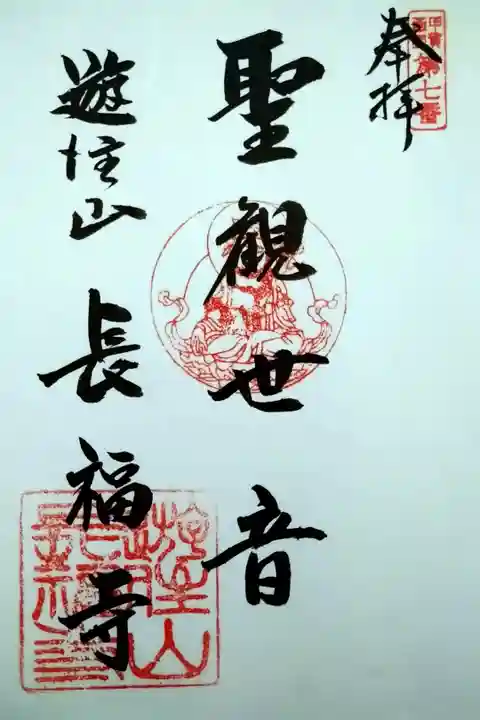 奉拝
甲賀
第七番
聖観世音
遊住山 長福寺